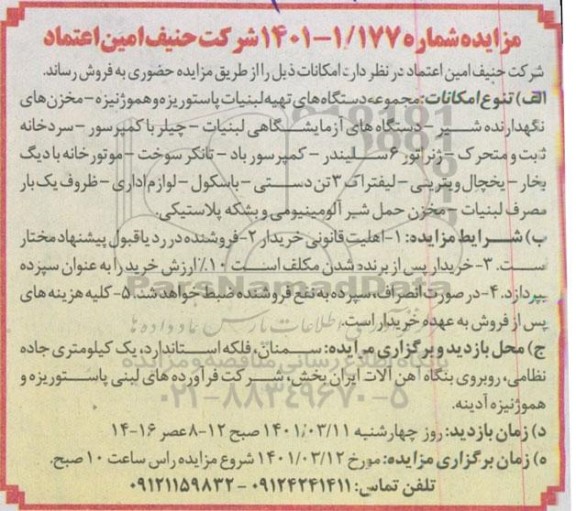 مزایده شماره ۱/۱۷۷-۱۴۰۱ شرکت حنیف امین اعتماد
شرکت حنیف امین اعتماد در نظر دارد امکانات ذیل را از طریق مزایده حضوری به فروش رساند.
الف) تنوع امکانات: مجموعه دستگاه های تهیه لبنیات پاستوریزه و هموژنیزه - مخزن های
نگهدارنده شیر - دستگاه های آزمایشگاهی لبنیات - چیلر با کمپرسور - سردخانه
ثابت و متحرک - ژنراتور ۶ سلیندر - کمپرسور باد - تانکر سوخت - موتورخانه با دیگ
بخار - یخچال ویترینی - لیفتراک ۳ تن دستی - باسکول - لوازم اداری - ظروف یک بار
مصرف لبنیات - مخزن حمل شیر آلومینیومی و بشکه پلاستیکی.
ب) شرایط مزایده: ۱- اهلیت قانونی خریدار ۲- فروشنده در رد یا قبول پیشنهاد مختار
است. ۳- خریدار پس از برنده شدن مکلف است ۱۰٪ ارزش خرید را به عنوان سپرده
بپردازد. ۴- در صورت انصراف، سپرده به نفع فروشنده ضبط خواهد شد. ۵- کلیه هزینه های
پس از فروش به عهده خریدار است.
ج) محل بازدید و برگزاری مزایده: سمنان، فلکه استاندارد، یک کیلومتری جاده
نظامی، روبروی بنگاه آهن آلات ایران پخش، شرکت فرآورده های لبنی پاستوریزه و
هموژنیزه آدینه.
د) زمان بازدید: روز چهارشنبه ۱۴۰۱/۰۳/۱۱ صبح ۱۲-۸ عصر ۱۶-۱۴
ه) زمان برگزاری مزایده: مورخ ۱۴۰۱/۰۳/۱۲ شروع مزایده راس ساعت ۱۰ صبح.
تلفن تماس: ۰۹۱۲۴۲۴۱۴۱۱ - ۰۹۱۲۱۱۵۹۸۳۲
ParsNamadData
۰۲۱-۸۸۳۴۹۶۷۰-۵